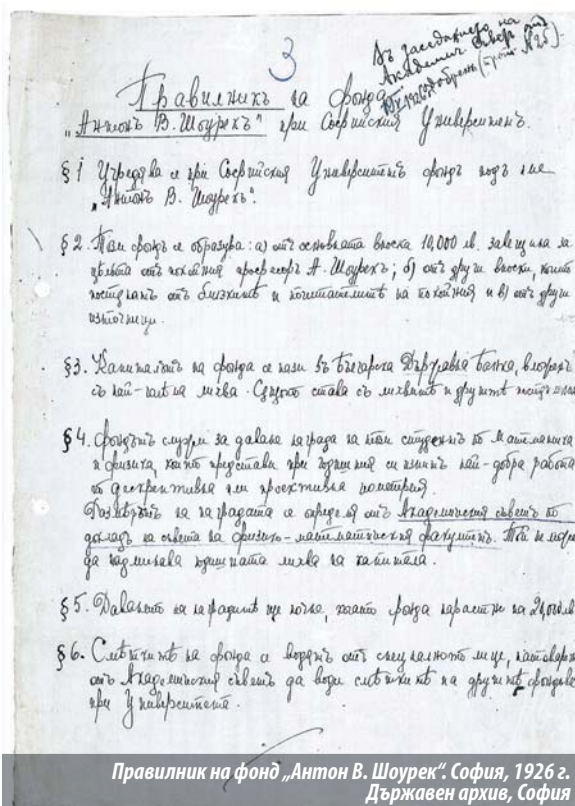 3
Въ заседанието на
Академич. съвет отъ
одобренъ (прот. №25).
Правилникъ на фонда
„Антонъ В. Шоурекъ“ при Софийския Университетъ.
§1 Учредява се при Софийския Университетъ фондъ подъ име
„Антонъ В. Шоурекъ“.
§2. Този фондъ се образува: а) отъ основната вноска 10,000 лв. завещана за
цельта отъ покойния професоръ А. Шоурекъ; б) отъ други вноски, които
постѫпватъ отъ близкитѣ и почитателитѣ на покойния и в) отъ други
източници.
§3. Капиталътъ на фонда се пази въ Българска Държавна Банка, вложенъ
съ най-голѣма лихва. Сѫщото става съ лихвитѣ и другитѣ
§4. Фондътъ служи за даване награда на този студентъ по Математика
и физика, който представи при годишния си изпитъ най-добра работа
по дескриптивна или проективна геометрия.
Размѣрътъ на наградата се определя отъ Академическия съветъ по
докладъ на съвета на физико-математическия факултетъ. Той не може
да надминава годишната лихва на капитала.
§5. Даването на наградитѣ ще почне, когато фонда нарастне на
§6. Смѣткитѣ на фонда се водятъ отъ специалното лице, натоварено
отъ Академическия съветъ да води смѣткитѣ на другитѣ фондове
при Университета.
Правилник на фонд „Антон В. Шоурек“. София, 1926 г.
Държавен архив, София